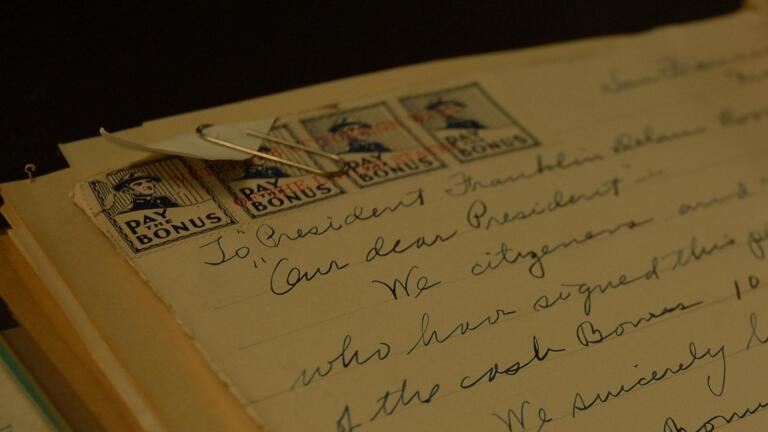 PAY THE BONUS
PAY THE BONUS
PAY THE BONUS
PAY THE BONUS
San
To "President Franklin Delano
"Our dear President" -
We citizeners and
who have signed this
of the cash Bonus 10
We sincerely
Bonus